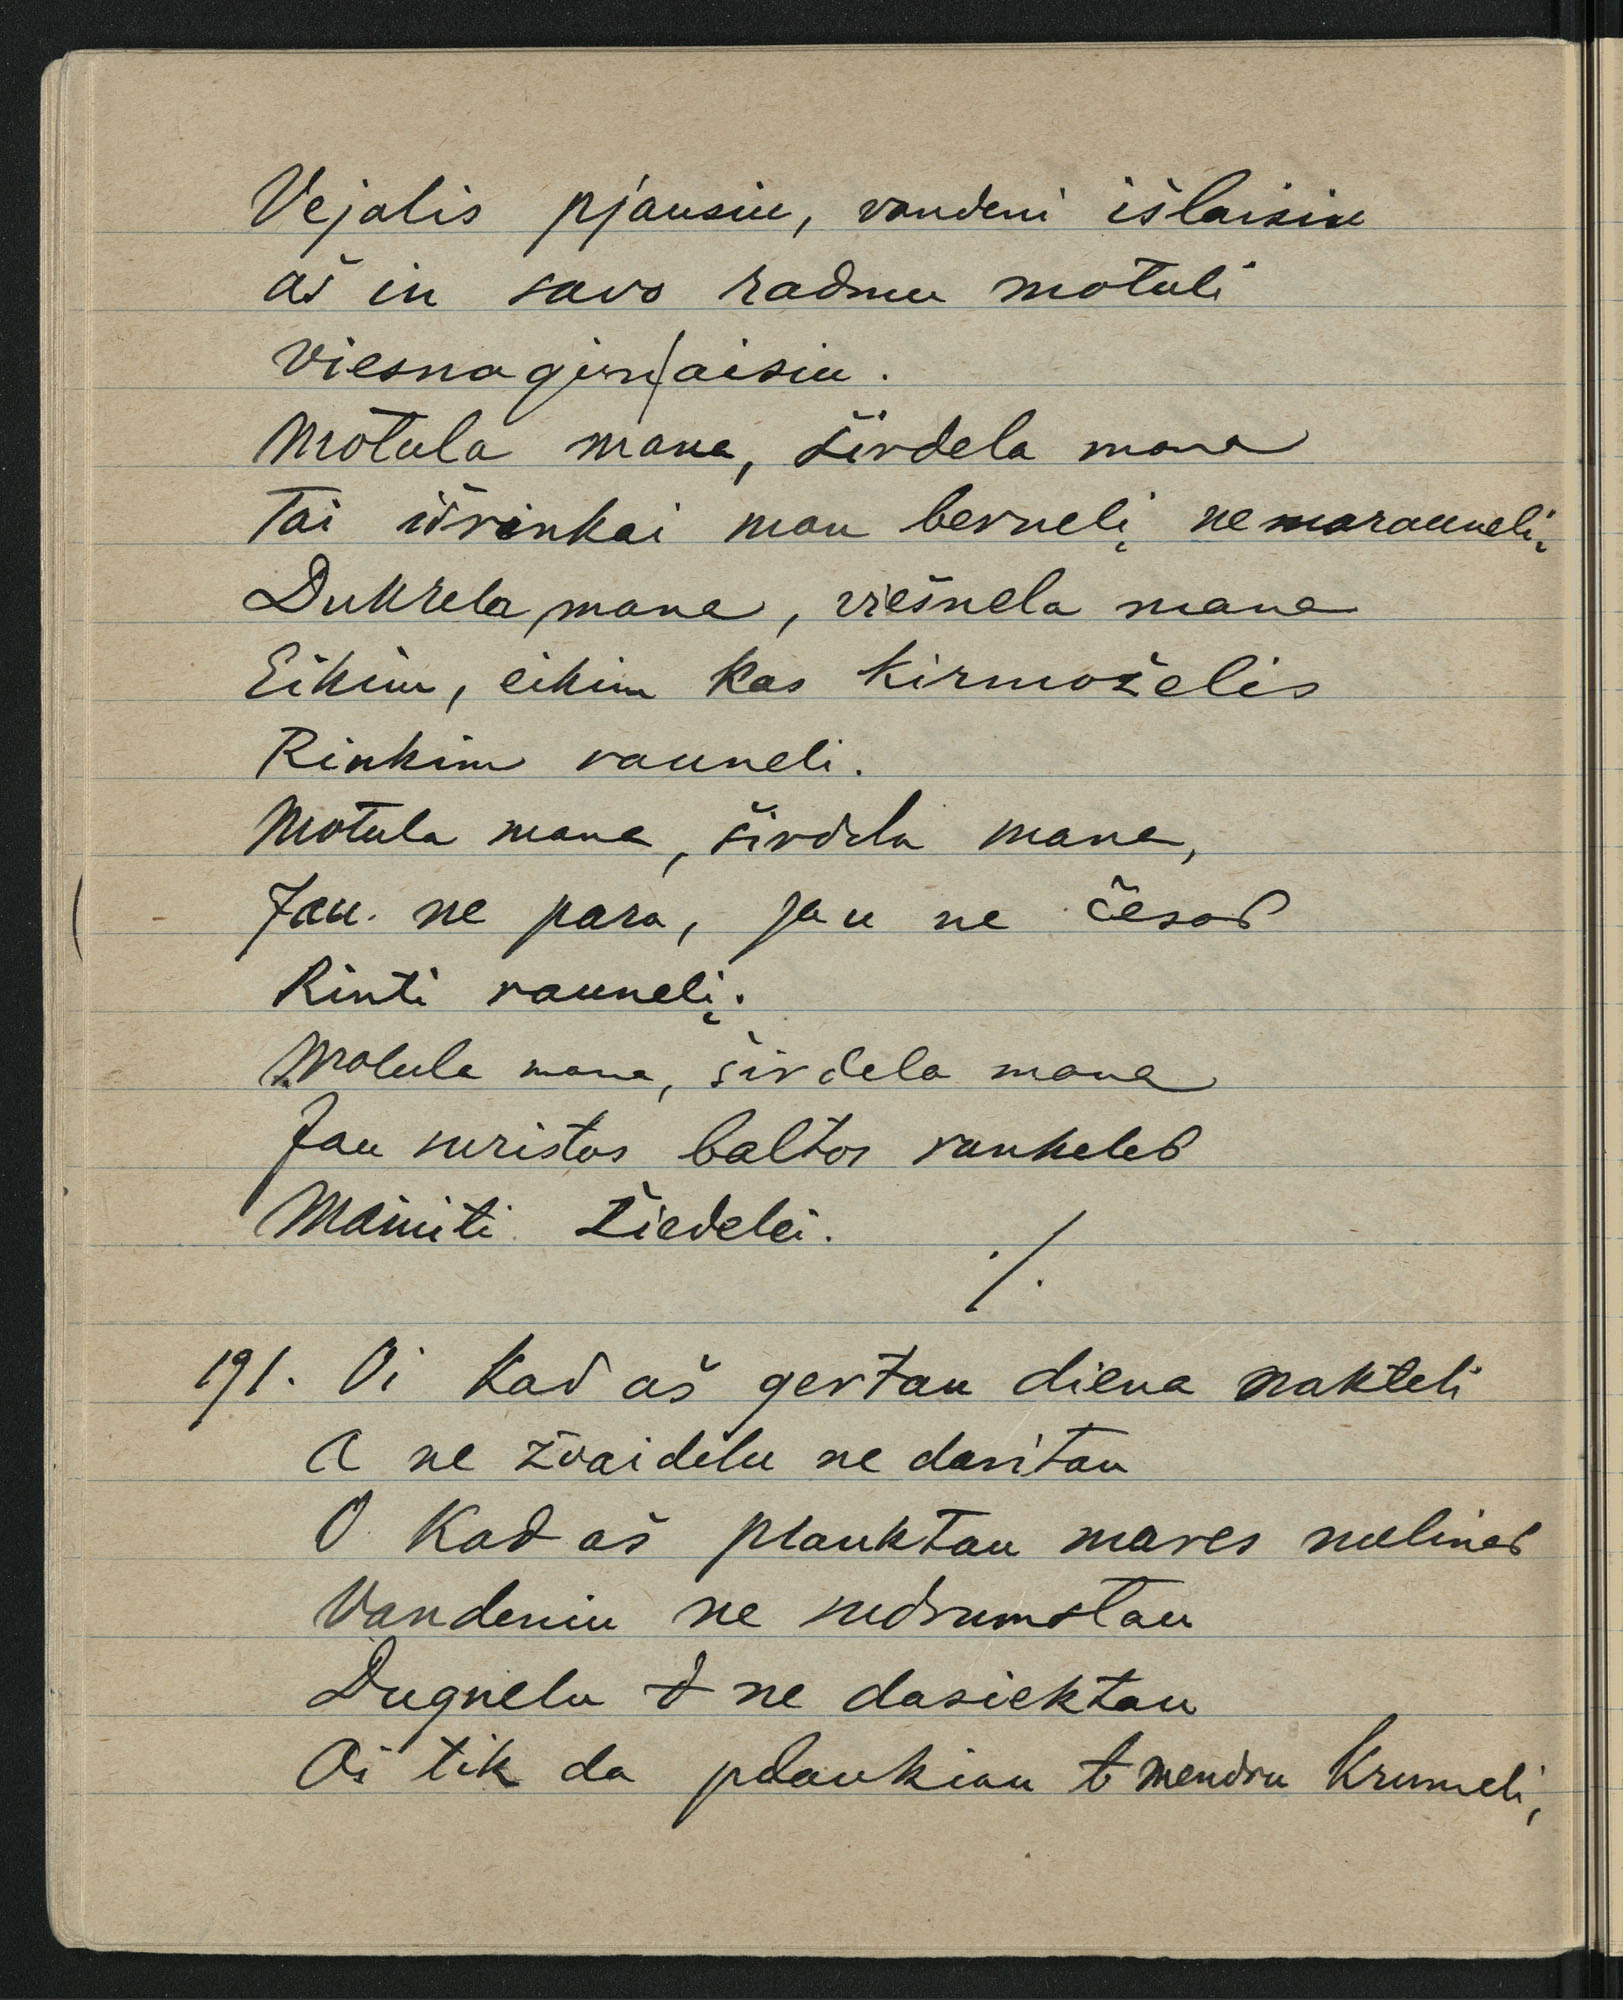 Vejalis pjausiu, vandeni išlaisiu
aš in savo radnu motuli
viesnagin/aisiu.
Motula mana, širdela mana
Tai išrinkai man berneli̧ ne maraunelį.
Dukrela mana, viešnela mana
Eikim, eikim kas kirmoželis
Rinkim rauneli.
Motula mana, širdela mana,
Jau ne para, jau ne česas
Rinti raunelį.
Motula mana, širdela mana
Jau surištos baltos rankelės
Mainiti žiedelei.
./.
191. Oi kad aš gertau diena nakteli
A ne žvaidelu ne daritau
O kad aš plauktau mares melinas
Vandeniu ne sudrumstau
Dugnelu ne dasiektau
Aš tik da plaukiau mendru krumeli,